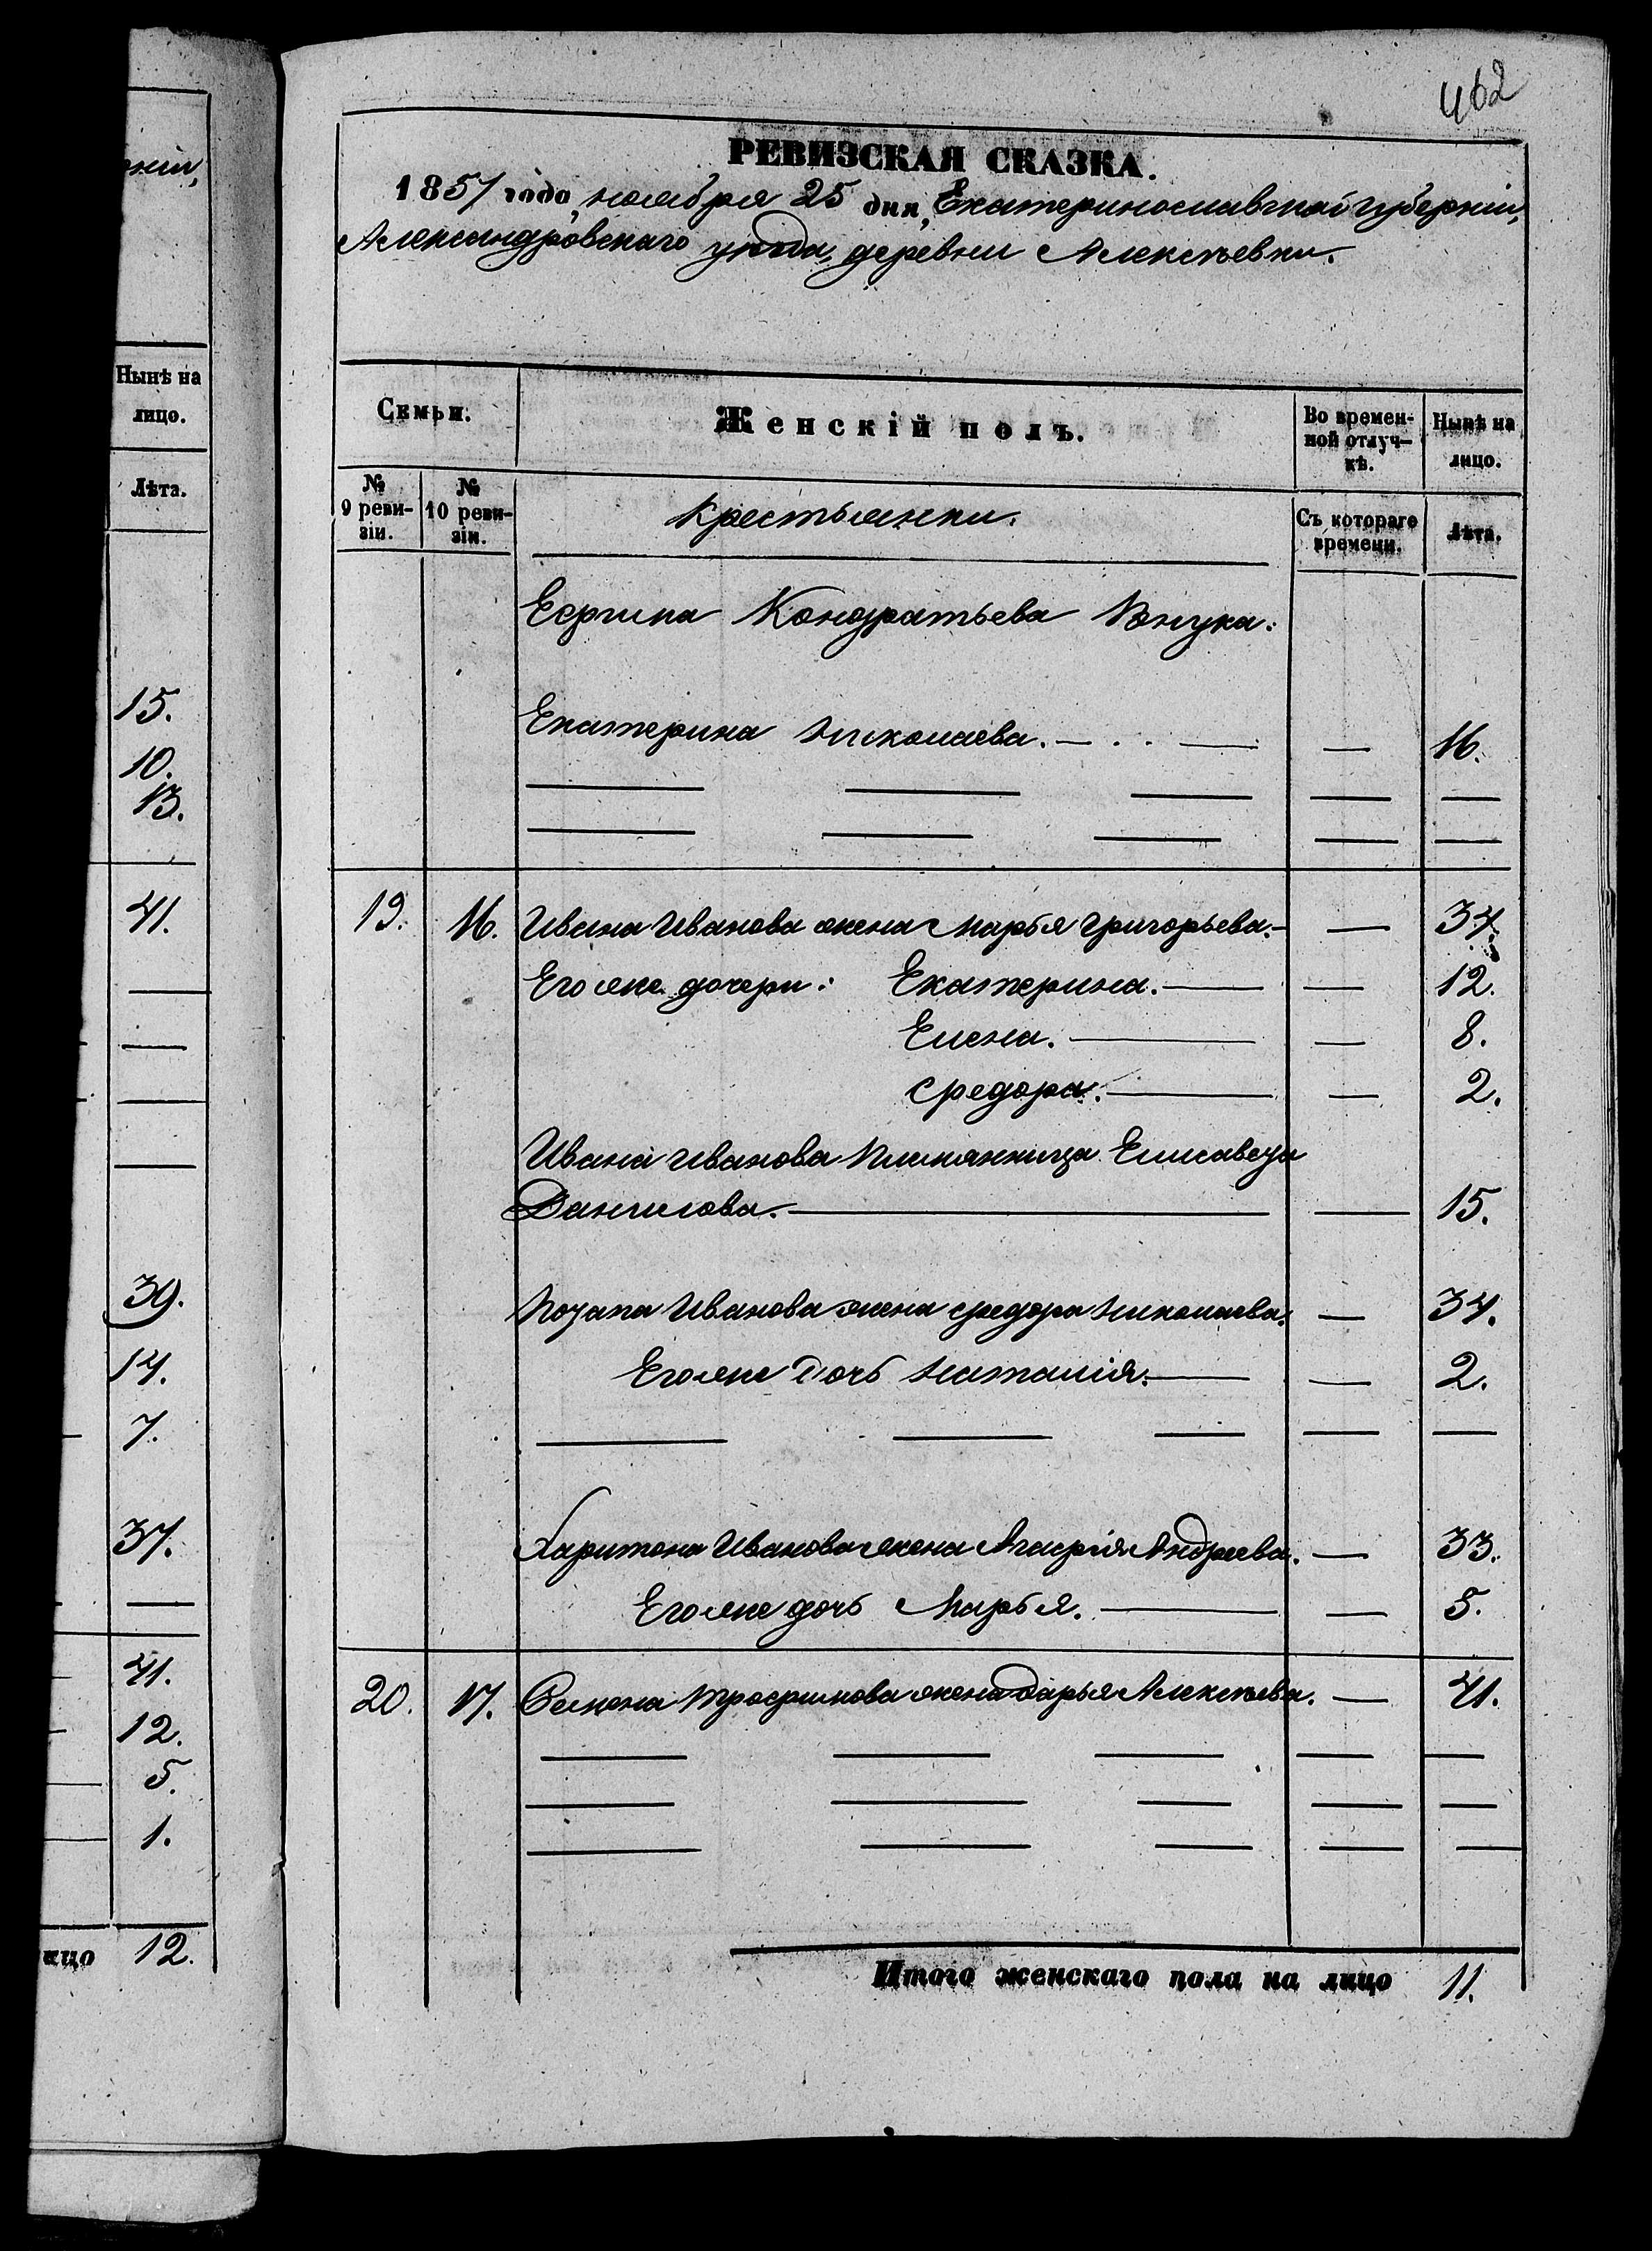 ніи,
Нынѣ на
лицо.
Лѣта.
15.
10.
13.
41.
39.
14.
7.
37.
41.
12.
5.
1.
ицо 12.
462
РЕВИЗСКАЯ СКАЗКА.
1857 года, ноября 25 дня, Екатеринославской губерніи,
Александровскаго уѣзда, деревни Алексѣевки.
Семьи. Женскій полъ. Во времен- Нынѣ на
ной отлуч- лицо.
кѣ.
№ №
9 реви- 10 реви- Крестьянки. Съ котораго Лѣта.
зіи. зіи. времени.
Ефима Кондратьева Внука:
Екатерина Николаева. — 16.
19. 16. Ивана Иванова жена Марья Григорьева. — 34.
Его же дочери: Екатерина. — 12.
Елена. — 8.
Федора. — 2.
Ивана Иванова племянница Елисавета
Данилова. — 15.
Иванова жена Федора Николаева. — 34.
Его же дочь Наталія. — 2.
Харитона Иванова жена Агафія Андреева. — 33.
Его же дочь Марья. — 5.
20. 17. Семена Трофимова жена Дарья Алексѣева. — 41.
Итого женскаго пола на лицо 11.